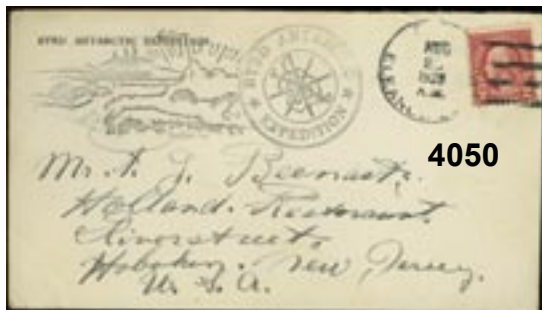 BYRD ANTARCTIC EXPEDITION
BYRD ANTARCTIC
EXPEDITION
AUG
4050
Mr. A. J.
Holland. Restaurant.
Riverstreet.
Hoboken. New Jersey.
U. S. A.